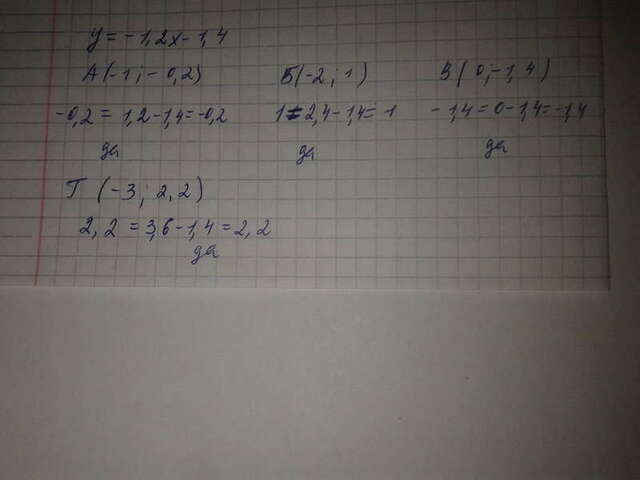 y = -1,2x - 1,4
А (-1; -0,2) Б (-2; 1) В (0; -1,4)
-0,2 = 1,2 - 1,4 = -0,2 1 = 2,4 - 1,4 = 1 -1,4 = 0 - 1,4 = -1,4
да да да
Г (-3; 2,2)
2,2 = 3,6 - 1,4 = 2,2
да